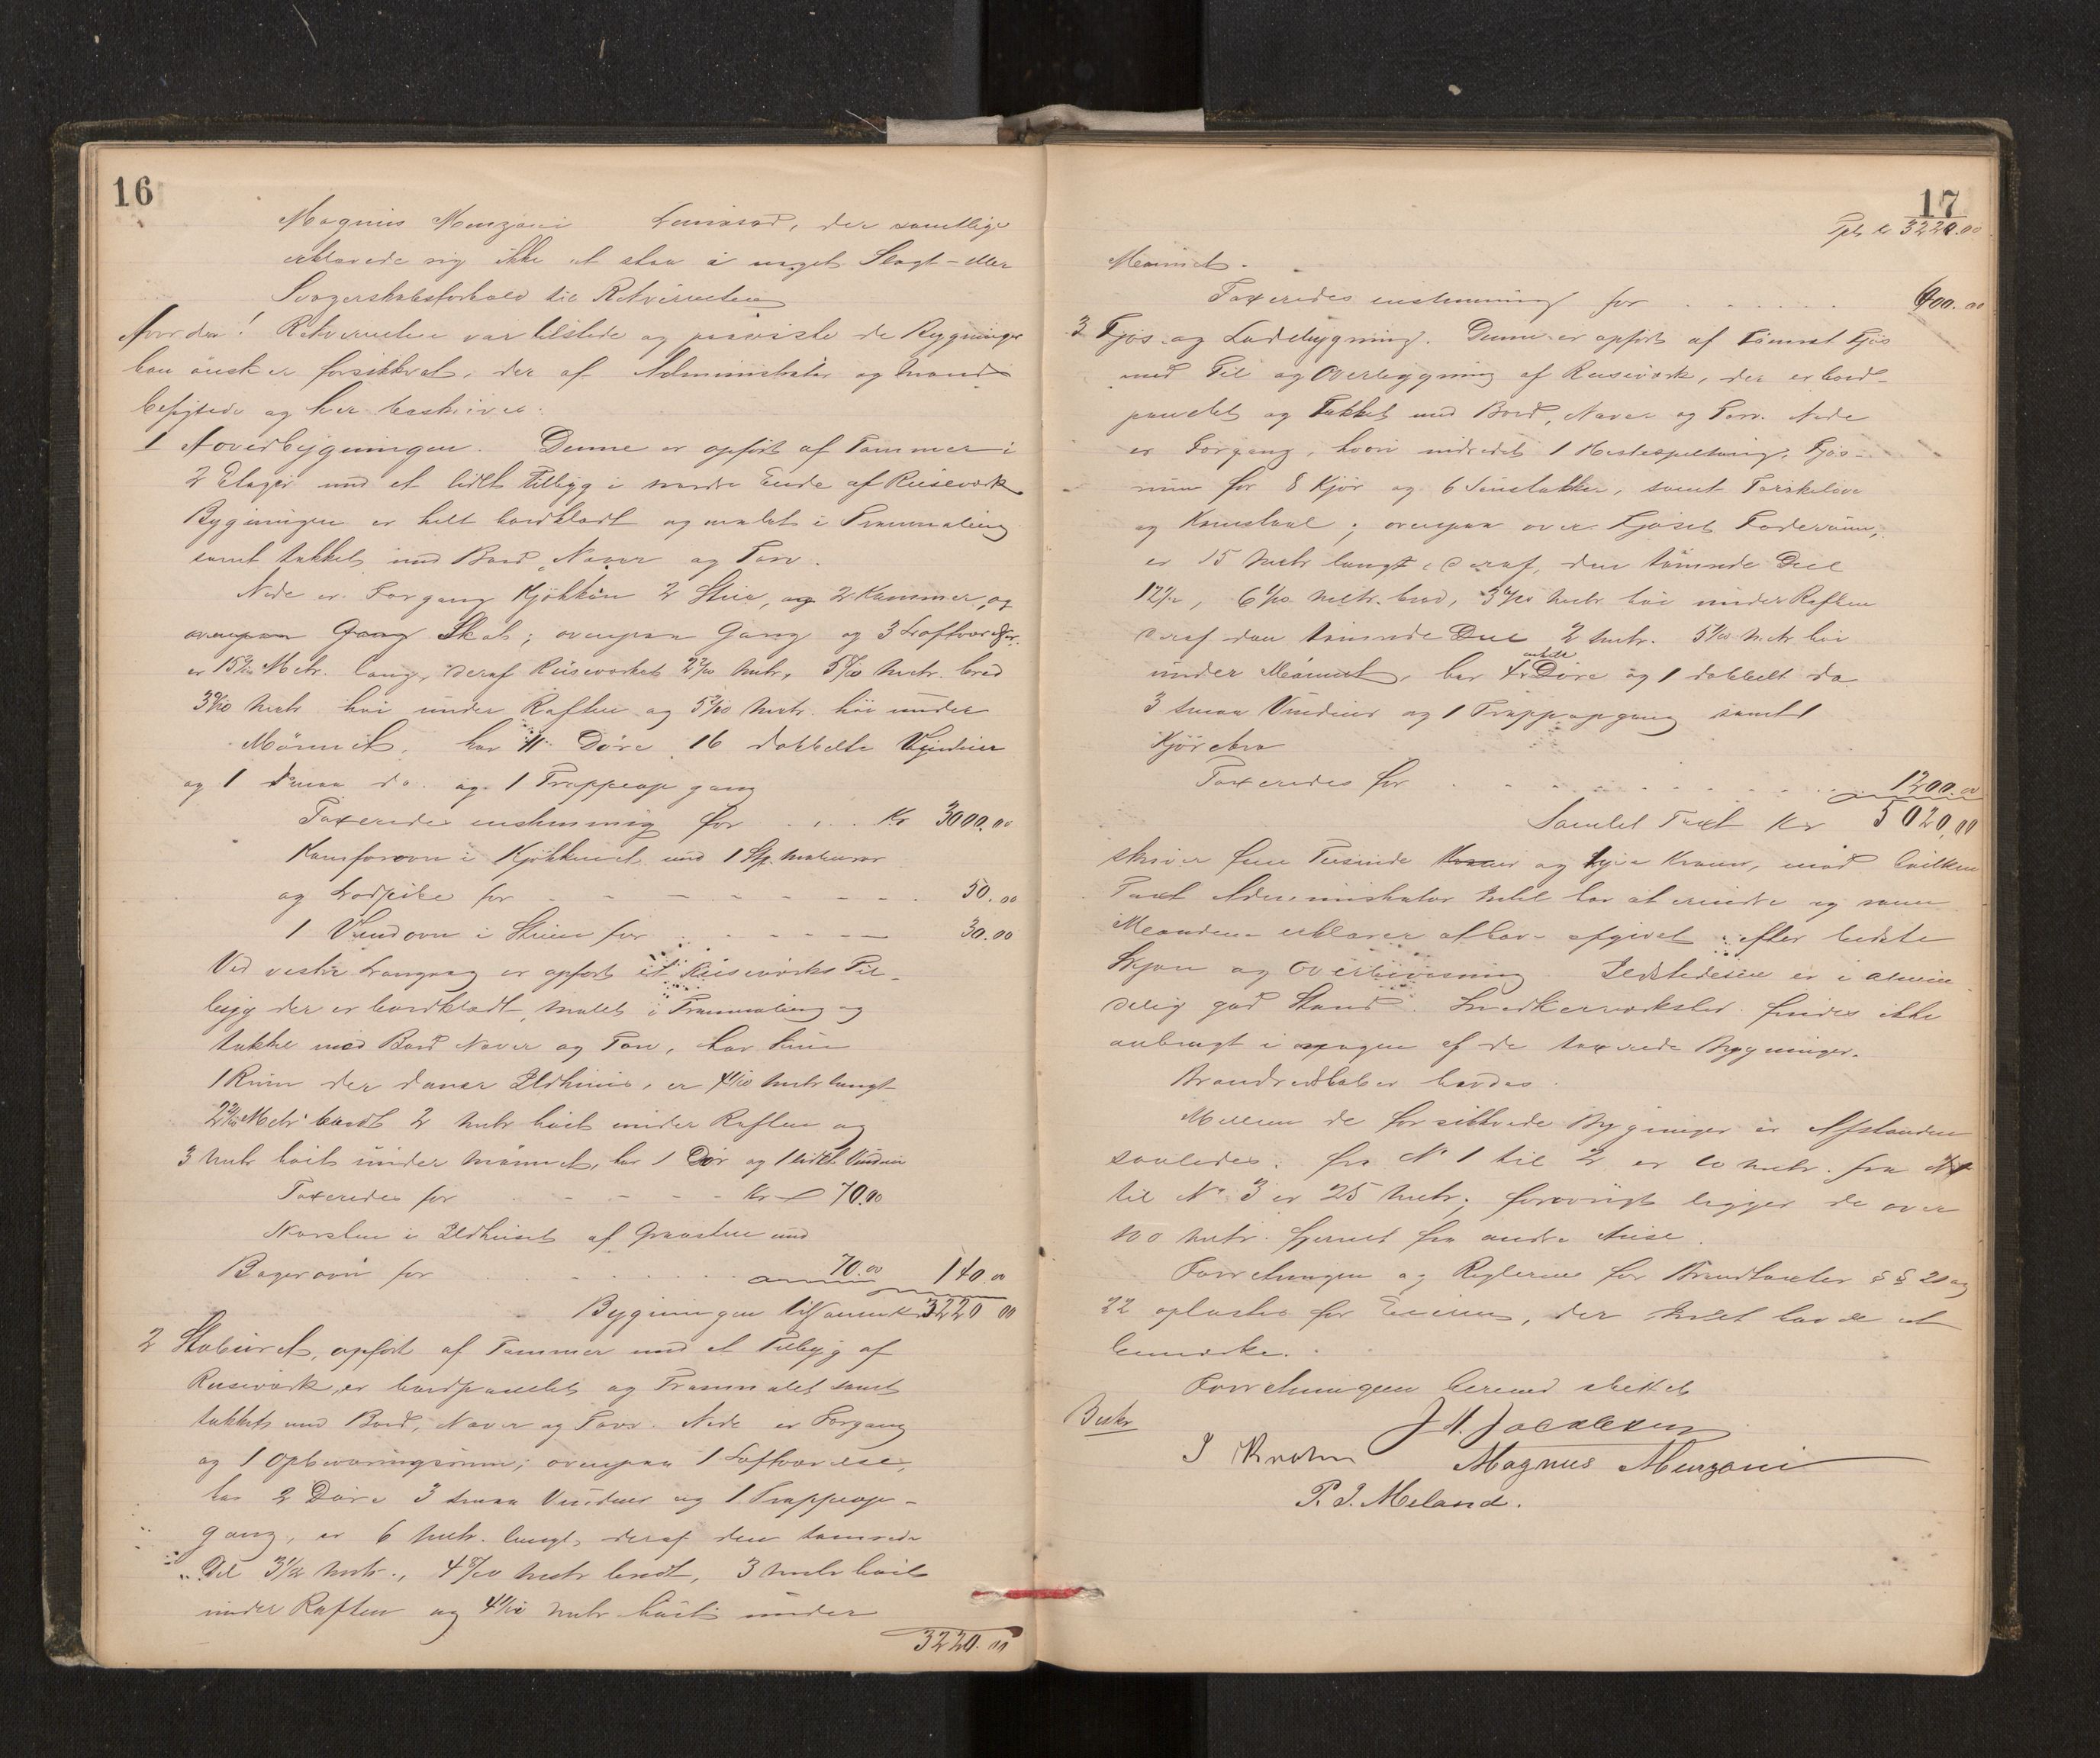 16
Magnus Menzoni Lensmand, der samtlige
erklærede sig ikke at staa i noget Slægt- eller
Svogerskabsforhold til Rekvirenten
Rekvirenten var tilstede og paaviste de Bygninger
han ønsker forsikkret, der af Administrator og Mænd
besigtedes og her beskrives:
1 Hovedbygningen. Denne er opført af Tømmer i
2 Etager med et lidet Tilbyg i nordre Ende af Reisværk
Bygningen er helt bordklædt og malet i Tranmaling
samt tækket med Bord, Næver og Torv.
Nede er Forgang Kjøkken 2 Stuer, og 2 Kammer, og
Skab; ovenpaa Gang og 3 Loftværelser.
er 15 Metr. lang, deraf Reisværket 2 Metr, 5 Metr. bred
3 Metr høi under Raften og 5 Metr. høi under
Mønnet. har 11 Døre 16 dobbelte Vinduer
og 1 smaa do. og 1 Trappeopgang
Taxeredes enstemmig for . . . Kr 3000.00
Komforovn i Kjøkkenet med 1 Stk.
og for - - - - - - - 50.00
1 Vindovn i Stuen for - - - - - 30.00
Ved vestre Langvæg er opført et Reisværks Til-
byg der er bordklædt, malet i Tranmaling og
tækket med Bord Næver og Torv, har kun
1 Rum der danner Ildhuus, er 4 Metr langt
2 Metr bredt 2 Metr høit under Raften og
3 Metr høit under Mønnet, har 1 Dør og 1 lidet Vindue
Taxeredes for - - - - Kr 70.00
i Ildhuset af Graasten med
Bagerovn for . . . . . . 70.00 140.00
Bygningen tilsammen Kr 3220 00
2 Stabburet, opført af Tømmer med et Tilbyg af
Reisværk, er bordpanelet og Tranmalet samt
tækket med Bord, Næver og Torv. Nede er Forgang
og 1 Opbevaringsrum; ovenpaa 1 Loftværelse,
har 2 Døre 3 smaa Vinduer og 1 Trappeop-
gang, er 6 Metr. langt, deraf den tømrede
Del 3 1/2 Metr., 4 8/10 Metr bredt, 3 Metr høit
under Raften og 4 Metr høit under
3220.00
17
3220.00
Mønnet.
Taxeredes enstemmig for . . . . . . 600.00
3 Fjøs og Ladebygning. Denne er opført af tømret Fjøs
med Til og Overbygning af Reisværk, der er bord-
panelet og Tækket med Bord, Næver og Torv. Nede
er Forgang, hvori indredet 1 Hestespiltaug, Fjøs-
rum for 8 Kjør og 6 samt Tærskelove
og Kornstaal; ovenpaa over Fjøset Foderrum,
er 15 Metr langt, deraf, den tømrede Del
12, 6 Metr. bred, 3 Metr høi under Raften
deraf den tømrede Del 2 Metr. 5 Metr høi
under Mønnet, har 4 enkelt Døre og 1 dobbelt do
3 smaa Vinduer og 1 Trappopgang samt 1
Kjørebro
Taxeredes for . . . . . . . . . . 1200.00
Samlet Taxt Kr 5020,00
skriver fem Tusinde og tyve Kroner, mod hvilken
Taxt Administrator Intet har at erindre og som
Mændene erklærer at have afgivet efter bedste
Skjøn og Overbevisning Ildstederne er i almin
delig god Stand. Snedkerværksted findes ikke
anbragt i nogen af de taxerede Bygninger.
Brandredskaber havdes.
Mellem de forsikkrede Bygninger er Afstanden
saaledes: fra No 1 til 2 er 10 Metr. fra No 1
til No 3 er 25 Metr; forøvrigt ligger de over
100 Metr. fjernet fra andre Huse.
Forretningen og Reglerne for Brandtaxter §§ 20 og
22 oplæstes for Eieren, der Intet havde at
bemærke.
Forretningen dermed sluttet
J M. Jacobsen
Magnus Menzoni
P. J. Meland.